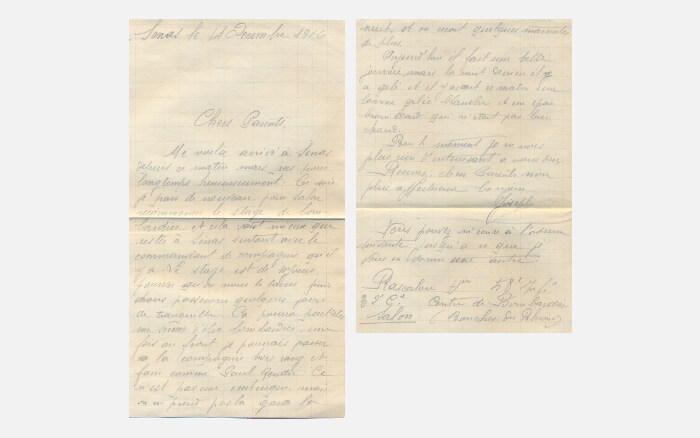 Senas le 14 Décembre 1916
Chers Parents,
Me voila arrivé à Senas
depuis ce matin mais pas pour
longtemps heureusement. Ce soir
je pars de nouveau pour Salon
recommencer le stage de bom
bardier et cela vaut mieux que
rester à Senas surtout avec le
commandant de compagnie qu'il
y a. Le stage est de
pourvu que on nous le laisse finir
nous passerons quelques jours
de tranquille. Ca pourra peut être
me servir d'être bombardier, une
fois au front je pourrais passer
à la compagnie hors rang et
faire comme Paul Ce
n'est pas une mais
on n'prend pas la garde
et on mont quelques marmites
de plus.
Aujourd'hui il fait une belle
journée mais la nuit dernière il y
a gelé et il y avait ce matin une
bonne gelée blanche et un
brouillard qui n'était pas bien
chaud.
Pour le moment je ne vois
plus rien d'interessant a vous dire
Recevez, chers Parents mon
plus affectueux
Joseph
Vous pouvez m'écrire à l'adresse
suivante jusqu'à ce que je
vous en donne une autre.
58e Inf.
Cie Centre de Bombardier
Salon (Bouches du Rhône)